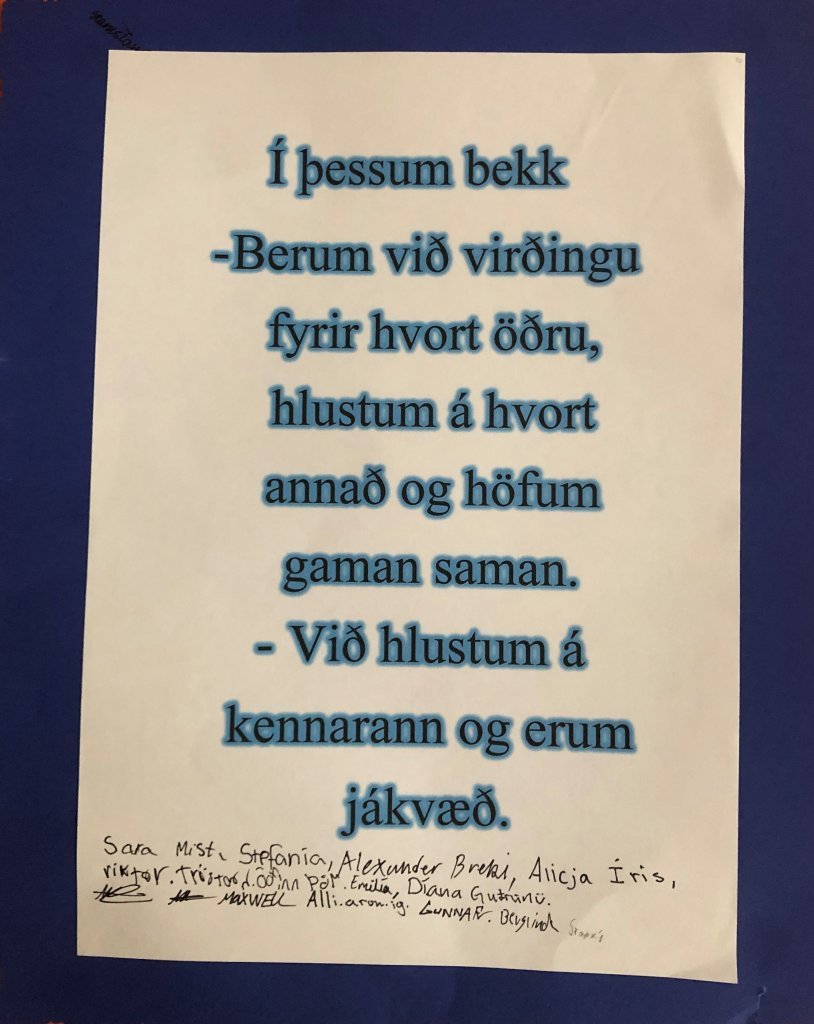 Í þessum bekk
-Berum við virðingu
fyrir hvort öðru,
hlustum á hvort
annað og höfum
gaman saman.
- Við hlustum á
kennarann og erum
jákvæð.
Sara Mist, Stefanía, Alexander Breki, Alicja Íris,
viktor. Óðinn Þór. Emilía, Díana Guðrún.
MAXWELL Alli.aron.ig. GUNNAR. Berglind